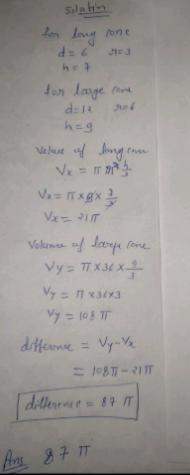 Solution
for long cone
d = 6 r = 3
h = 7
for large cone
d = 12 r = 6
h = 9
Volume of long cone
Vx = π r² h/3
Vx = π × 9 × 7/3
Vx = 21π
Volume of large cone
Vy = π × 36 × 9/3
Vy = π × 36 × 3
Vy = 108 π
difference = Vy - Vx
= 108π - 21π
difference = 87 π
Ans 87 π